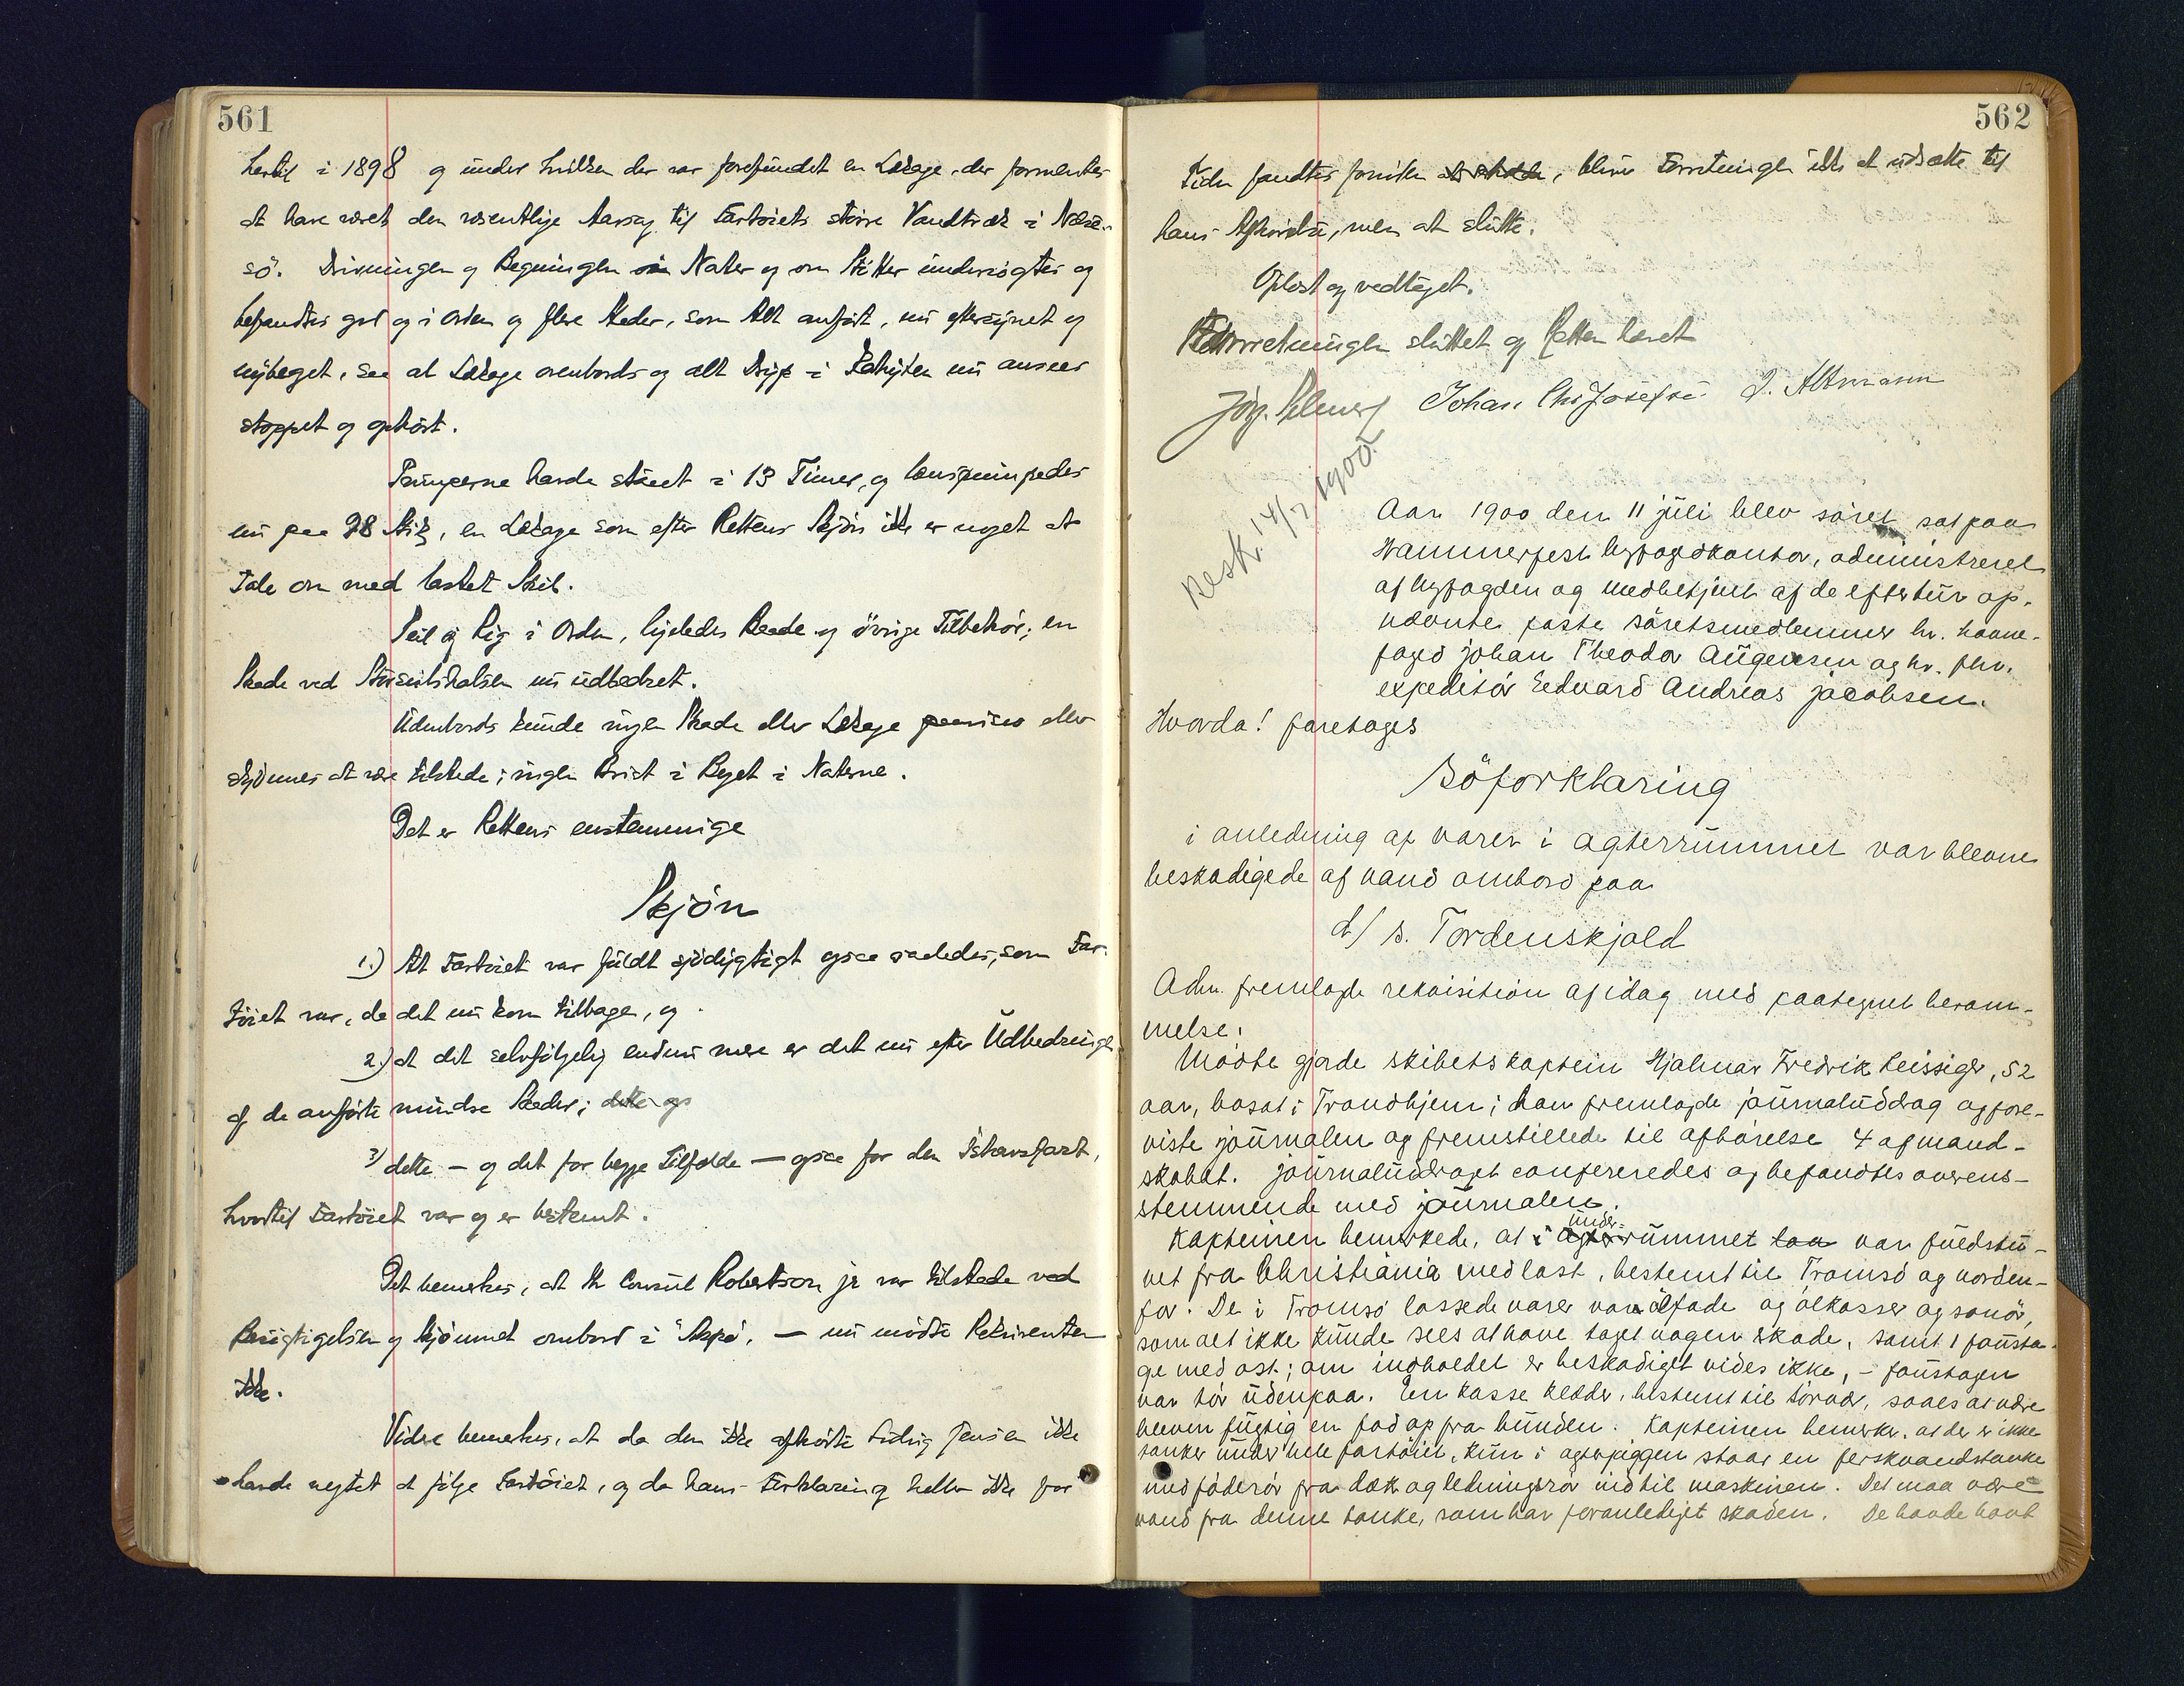 561
hertil i 1898 og under hvilken der var forefundet en Lækage, der formentes
at have været den væsentlige Aarsag til Fartøiets større Vandtræk i
sö. Drivningen og Begningen Nater og om Støtter undersøgtes og
befandtes god og i Orden og flere Steder, som Alt anført, nu efterseynet og
nybeget, saa at Lækage ovenbords og alt Dryp i Kahyten nu ansees
stoppet og ophört.
Pumperne havde staaet i 13 Timer, og lenspumpedes
nu paa 28 Stik, en Lækage som efter Rettens Skjön ikke er noget at
tale om med lastet Skib.
Seil og Rig i Orden, ligeledes Baade og övrige Tilbehör; en
Skade ved nu udbedret.
Udenbords kunde ingen Skade eller Lækage paavises eller
skjönnes at være tilstede; ingen Brist i Beget i Naterne.
Det er Rettens enstemmige
Skjön
1.) At Fartöiet var fuldt sjödygtigt ogsaa saaledes, som Far-
töiet var, da det nu kom tilbage, og
2.) at det selvfölgelig endnu mere er det nu efter Udbedringen
af de anförte mindre Skader; dette og
3) dette – og det for begge Tilfælde – ogsaa for den Ishavsfart,
hvortil Fartöiet var og er bestemt.
Det bemerkes, at Hr Consul Robertson jr var tilstede ved
Besigtigelsen og Skjönnet ombord i – nu mödte Rekvirenten
ikke.
Videre bemerkes, at da den ikke afhörte Ludvig Jensen ikke
havde negtet at fölge Fartöiet, og da hans Forklaring heller ikke for
562
Tiden fandtes fornöden, blev Forretningen ikke at udsætte til
hans Afhörelse, men at slutte.
Oplæst og vedtaget.
Forretningen sluttet og Retten hævet
Johan Chr Josefsen J. Altmann
Besk. 14/7 1900.
Aar 1900 den 11 juli blev söret sat paa
Hammerfest byfogedkontor, administreret
af byfogden og medbetjent af de eftertur op-
nævnte faste söretsmedlemmer hr. havne-
foged johan Theodor Augensen og hr. fhv.
expeditör Edvard Andreas jacobsen.
Hvorda! foretoges
Söforklaring
i anledning af varer i agterrummet var blevne
beskadigede af vand ombord paa
d/s. Tordenskjold
Adm. fremlagde rekvisition af idag med paategnet beram-
melse.
Mödte gjorde skibets kaptein Hjalmar Fredrik Reissiger, 52
aar, bosat i Trondhjem; han fremlagde journaluddrag og fore-
viste journalen og fremstillede til afhörelse 4 af mand-
skabet. journaluddraget confereredes og befandtes overens-
stemmende med journalen.
Kapteinen bemerkede, at i agter under-
rummet laa var fuldstu-
vet fra Christiania med last, bestemt til Tromsö og norden-
for. De i Tromsö lossede varer var ölfade og ölkasser og
som alt ikke kunde sees at have taget nogen skade, samt 1 fousta-
ge med ost; om indholdet er beskadiget vides ikke, – foustagen
var tör udenpaa. En kasse klæder, bestemt til sörvær, saaes at være
bleven fugtig en fod op fra bunden. Kapteinen bemerker, at der er ikke
tanker under hele fartöiet, kun i agterpiggen staar en ferskvandstanke
med föderör fra dæk og ledningsrör ind til maskinen. Det maa være
vand fra denne tanke, som har foranlediget skaden. De havde havt